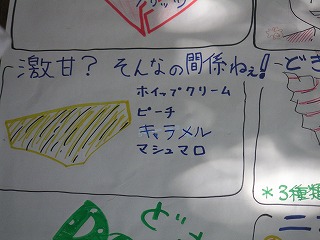 激甘？ そんなの関係ねぇ！
ホイップクリーム
ピーチ
キャラメル
マシュマロ
＊3種類